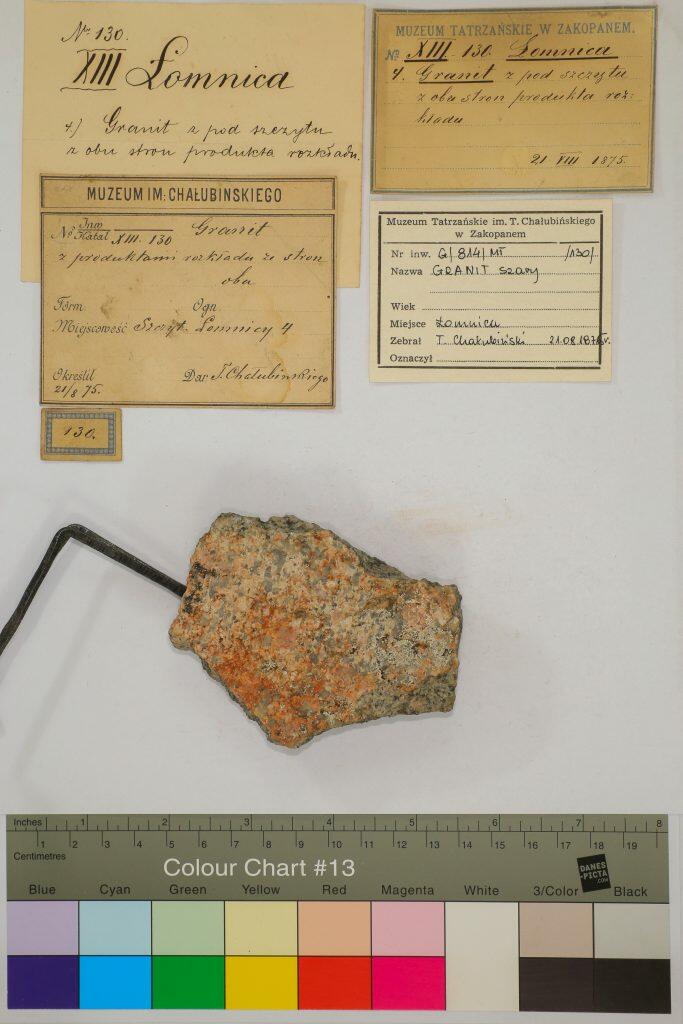 № 130.
XIII Łomnica
4) Granit z pod szczytu
z obu stron produkta rozkładu.
MUZEUM TATRZAŃSKIE W ZAKOPANEM.
№ XIII. 130. Łomnica
4. Granit z pod szczytu
z obu stron produkta roz-
kładu
21 VIII 1875.
MUZEUM IM: CHAŁUBINSKIEGO
№ Inw
Katal XIII. 130 Granit
z produktami rozkładu ze stron
obu
Form. Ogn.
Miejscowość Szczyt Łomnicy 4
Określił Dar T. Chałubińskiego
21/8 75.
130.
Muzeum Tatrzańskie im. T. Chałubińskiego
w Zakopanem
Nr inw. G/814/MT /130/
Nazwa GRANIT szary
Wiek
Miejsce Łomnica
Zebrał T. Chałubiński 21.08.1875r.
Oznaczył
Inches 1 2 3 4 5 6 7 8
1 2 3 4 5 6 7 8 9 10 11 12 13 14 15 16 17 18 19
Centimetres
Colour Chart #13
DANES
-PICTA
.COM
Blue Cyan Green Yellow Red Magenta White 3/Color Black